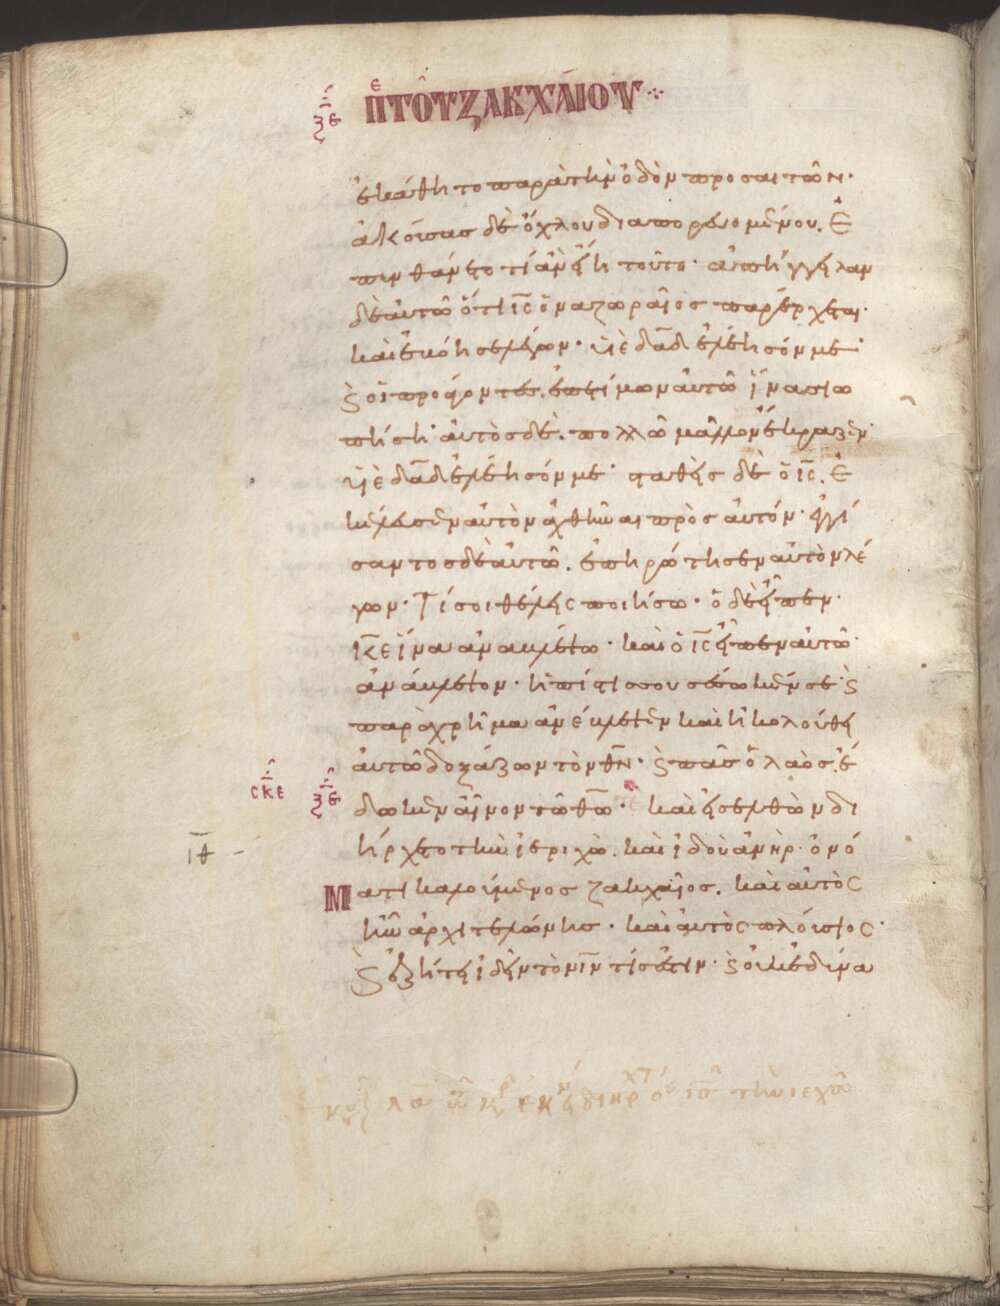 ξε πε του ζακχαιου
ἐκάθητο παρὰ τὴν ὁδὸν προσαιτῶν·
ἀκούσας δὲ ὄχλου διαπορευομένου, ἐ
πυνθάνετο τί ἂν εἴη τοῦτο· ἀπήγγειλαν
δὲ αὐτῶ ὅτι ις ὁ ναζωραῖος παρέρχεται·
καὶ ἐβόησε λέγων· υἱὲ δαδ ἐλέησόν με·
ϗ οἱ προάγοντες, ἐπετίμων αὐτῶ ἵνα σιω
πήση· αὐτὸς δὲ, πολλῶ μᾶλλον ἔκραζεν·
υἱὲ δαδ ἐλέησόν με· σταθεὶς δὲ ὁ ις, ἐ
κέλευσεν αὐτὸν ἀχθῆναι πρὸς αὐτόν· ἐγγί
σαντος δὲ αὐτῶ, ἐπηρώτησεν αὐτὸν λέ
γων· Τί σοι θέλεις ποιήσω· ὁ δὲ εἶπεν·
κε ἵνα ἀναβλέψω· καὶ ὁ ις εἶπεν αὐτῶ·
ἀνάβλεψον· ἡ πίστις σου σέσωκέν σε· ϗ
παραχρῆμα ἀνέβλεψεν καὶ ἠκολούθει
αὐτῶ δοξάζων τὸν θν· ϗ πᾶς ὁ λαὸς, ἔ
σκε ξε δωκεν αἶνον τῶ θω· καὶ εἰσελθὼν δι
ιθ ήρχετο τὴν ἱεριχὼ, καὶ ἰδοὺ ἀνὴρ ὀνό
ματι καλούμενος ζακχαῖος, καὶ αὐτὸς
ἦν ἀρχιτελώνης· καὶ αὐτὸς πλούσιος·
ϗ ἐζήτει ἰδεῖν τὸν ιν τίς ἐστιν· ϗ οὐκ ἐδύνα